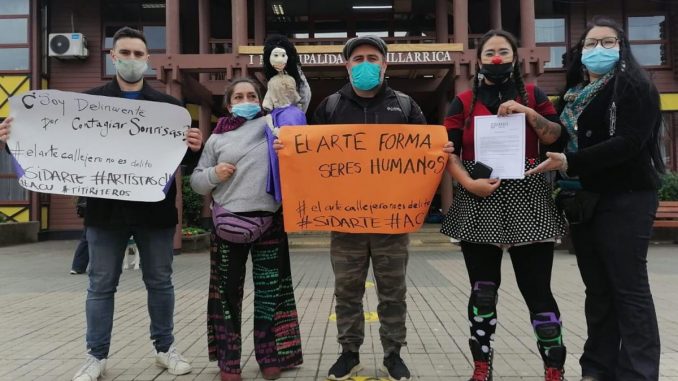 I MUNICIPALIDAD VILLARRICA
¿Soy Delincuente
por Contagiar Sonrisas?
#el arte callejero no es delito
SIDARTE #ARTISTAS
#TITIRITEROS
EL ARTE FORMA
SERES HUMANOS
#el arte callejero no es delito
#SIDARTE #A